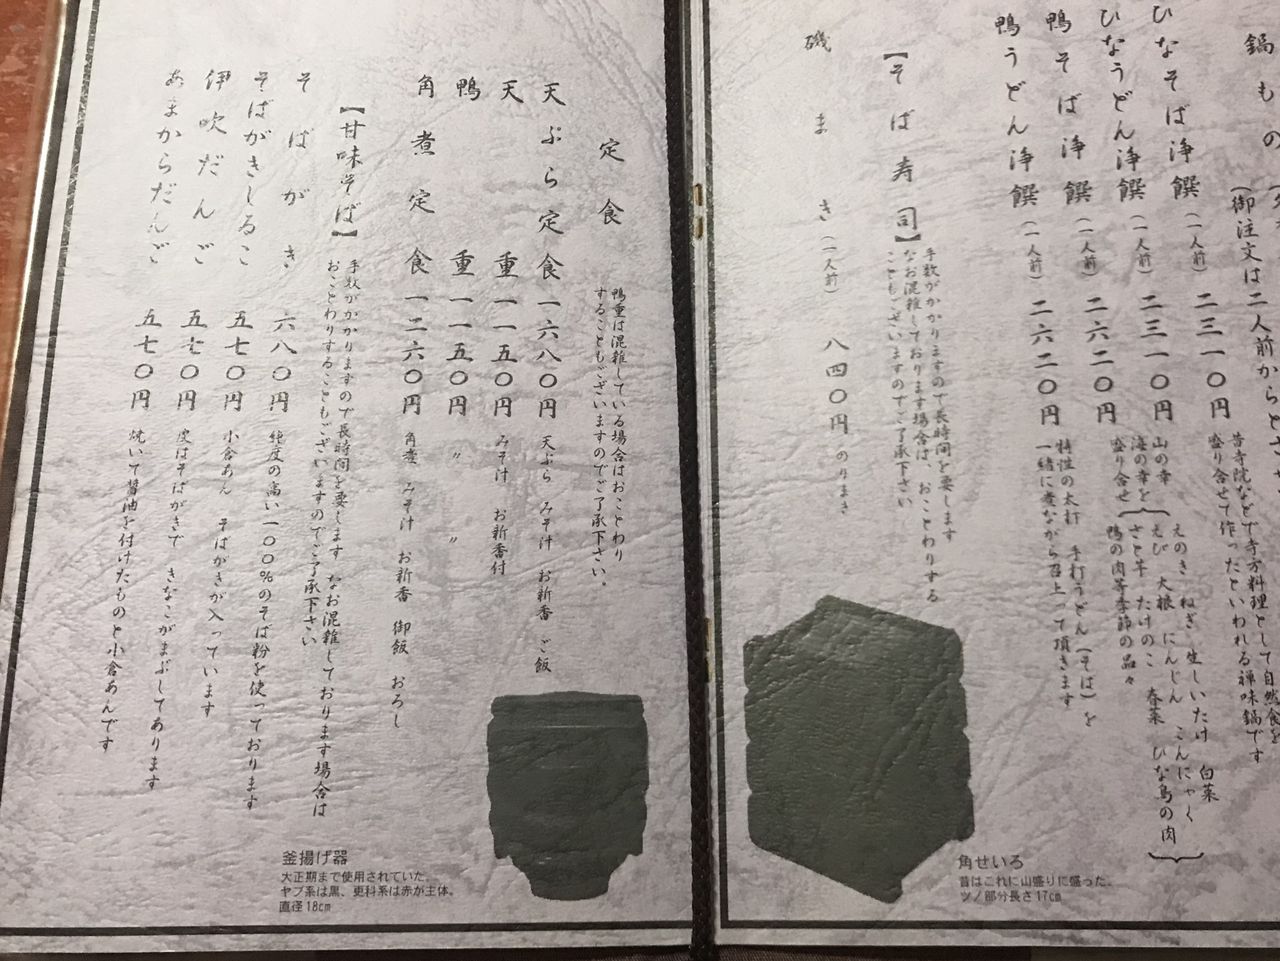 鍋もの
(御注文は二人前からとさ
昔寺院などで寺方料理として自然食を
盛り合せて作ったといわれる禅味鍋です
ひなそば浄饌(一人前)二三一〇円
ひなうどん浄饌(一人前)二三一〇円
山の幸 えのき ねぎ 生しいたけ 白菜
海の幸を えび 大根 にんじん こんにゃく
盛り合せ さと芋 たけのこ 春菜 ひな鳥の肉
鴨そば浄饌(一人前)二六二〇円
鴨の肉等季節の品々
鴨うどん浄饌(一人前)二六二〇円
特性の太打 手打うどん(そば)を
一緒に煮ながら召上って頂きます
【そば寿司】
手数がかかりますので長時間を要します
なお混雑しております場合は、おことわりする
こともございますのでご了承下さい
磯まき(一人前)八四〇円 のりまき
角せいろ
昔はこれに山盛りに盛った。
ツノ部分長さ17cm
定食
鴨重は混雑している場合はおことわり
することもございますのでご了承下さい。
天ぷら定食 一六八〇円 天ぷら みそ汁 お新香 ご飯
天重 一一五〇円 みそ汁 お新香付
鴨重 一一五〇円 〃 〃
角煮定食 一二六〇円 角煮 みそ汁 お新香 御飯 おろし
【甘味そば】
手数がかかりますので長時間を要します なお混雑しております場合は
おことわりすることもございますのでご了承下さい
そばがき 六八〇円 純度の高い一〇〇%のそば粉を使っております
そばがきしるこ 五七〇円 小倉あん そばがきが入っています
伊吹だんご 五七〇円 皮はそばがきで きなこがまぶしてあります
あまからだんご 五七〇円 焼いて醤油を付けたものと小倉あんです
釜揚げ器
大正期まで使用されていた。
ヤブ系は黒、更科系は赤が主体。
直径18cm